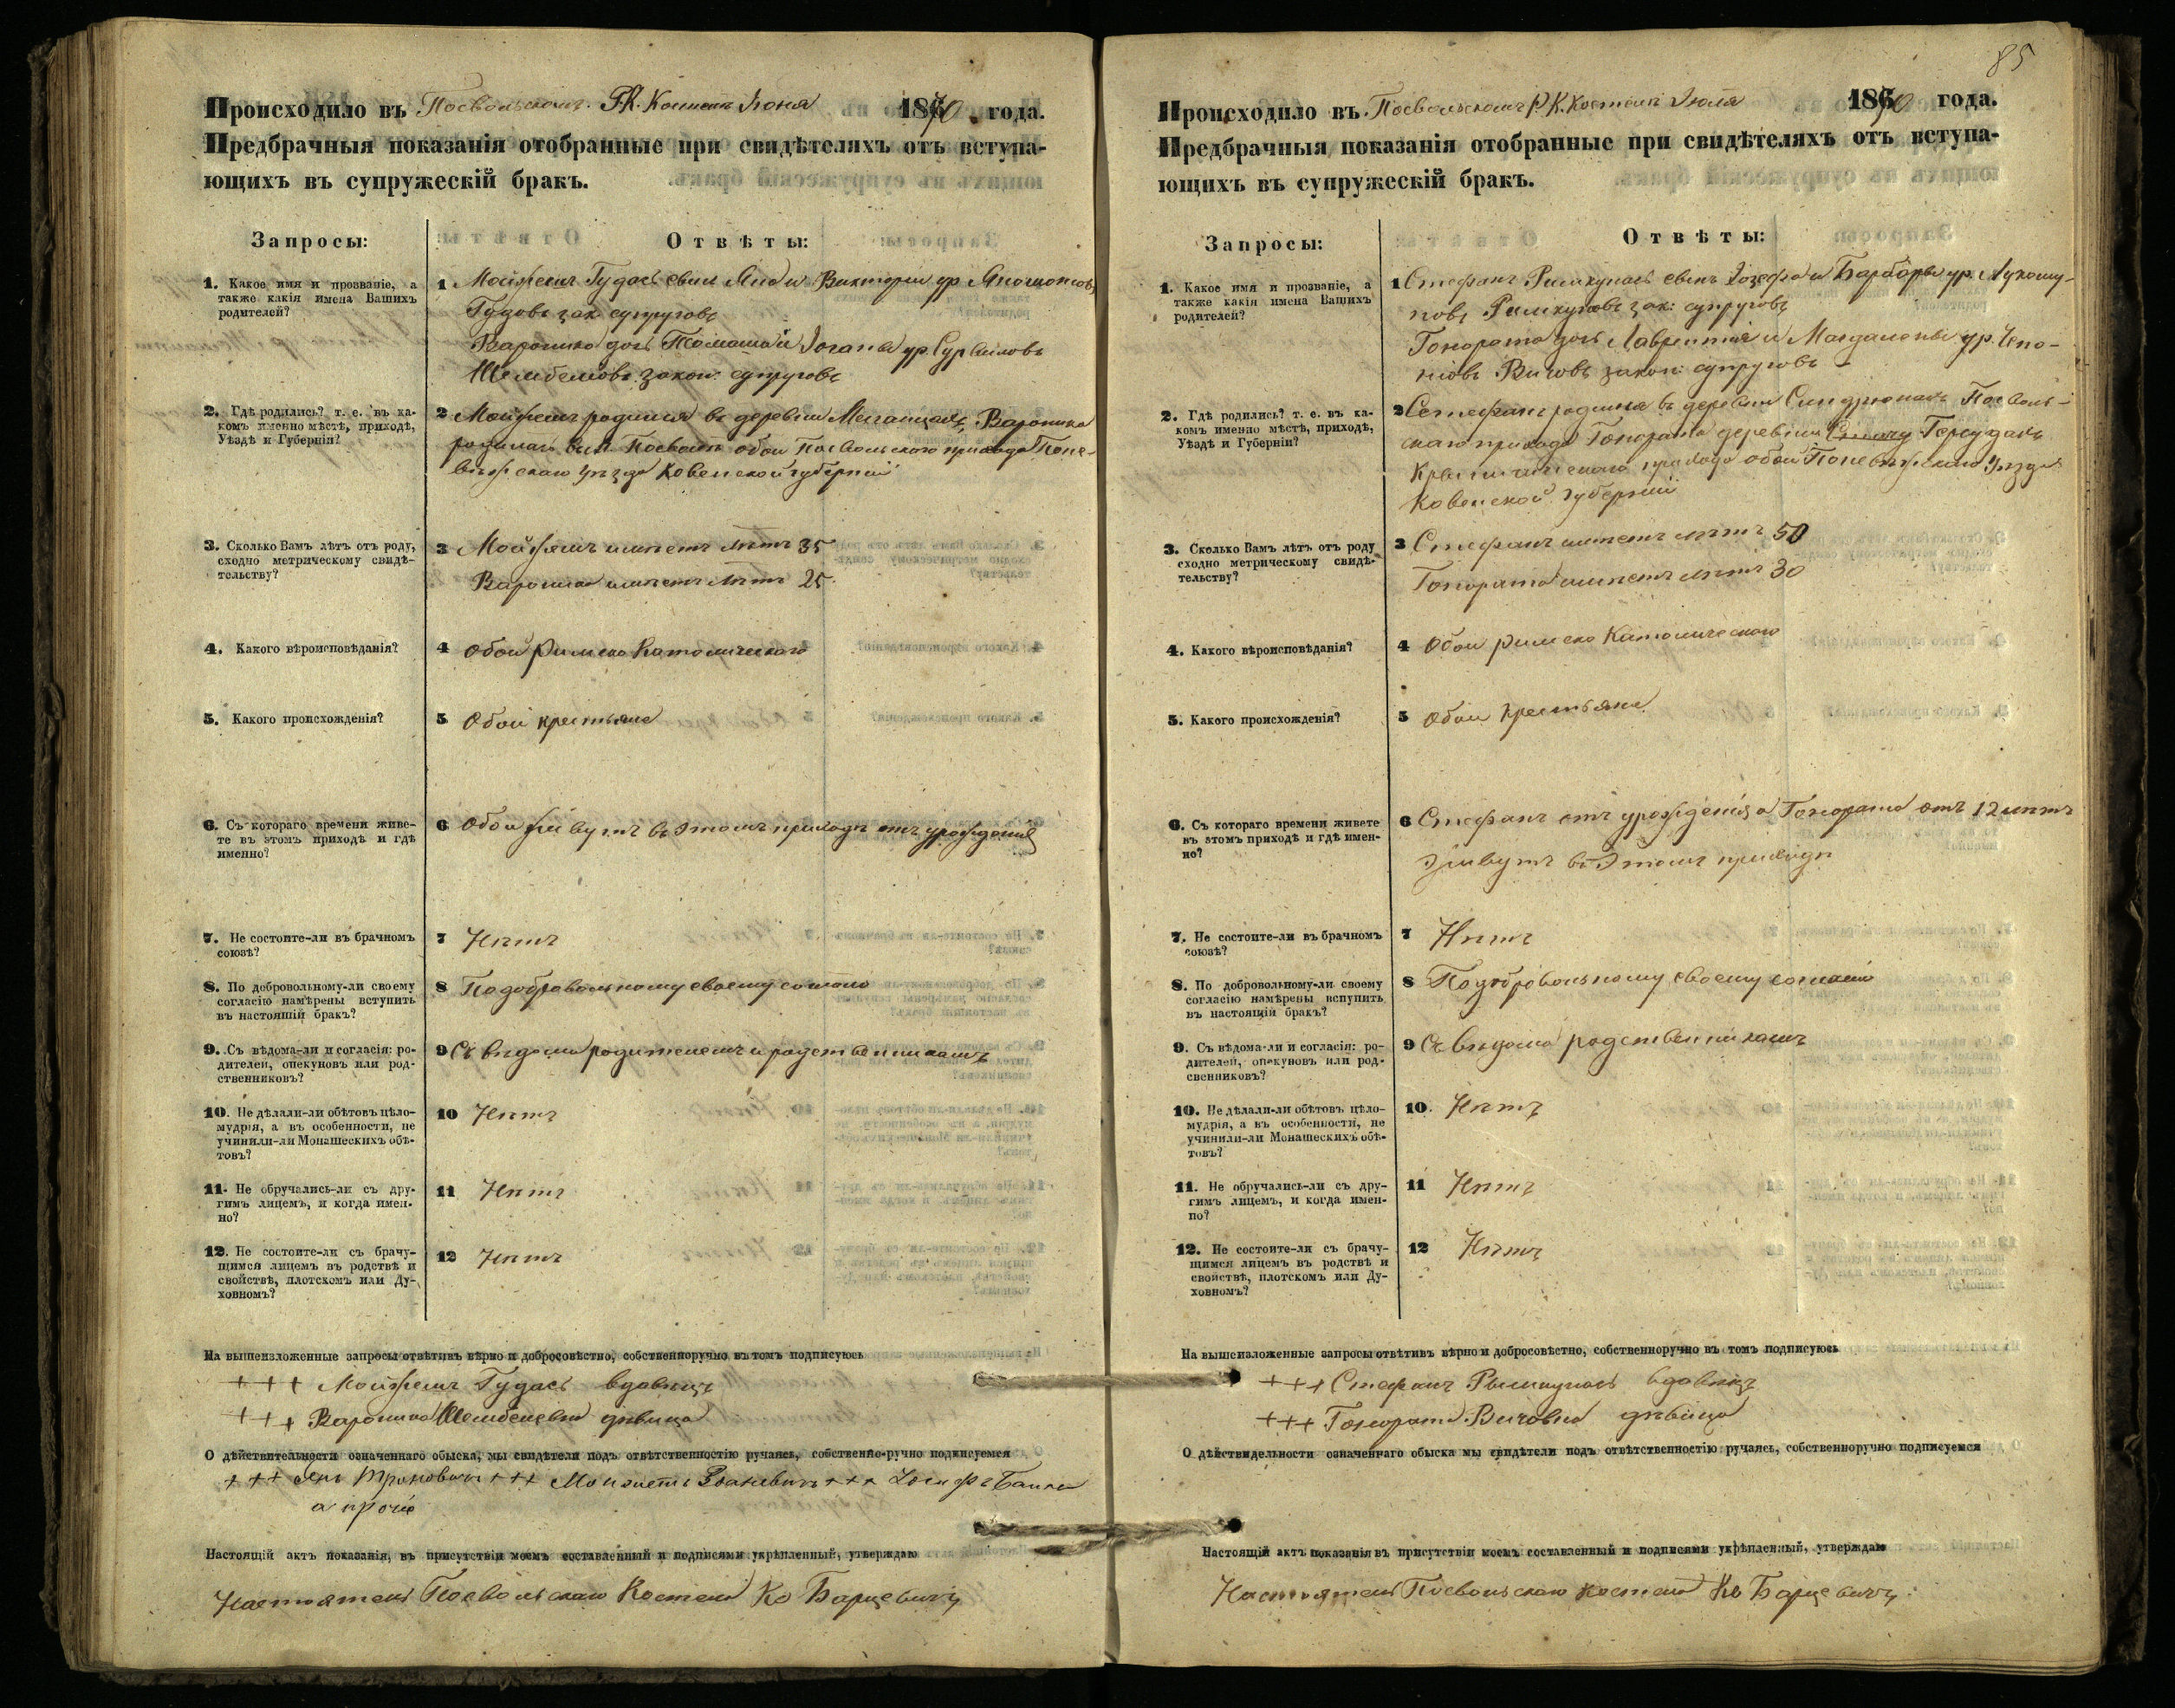 Происходило въ Посвольскомъ Р.К. Костелѣ Іюня 1870 года.
Предбрачныя показанія отобранные при свидѣтеляхъ отъ вступа-
ющихъ въ супружескій бракъ.
Запросы:
Отвѣты:
1. Какое имя и прозваніе, а
также какія имена Вашихъ
родителей?
1 Мойжешъ Гудасъ сынъ и Викторіи ур
Гудовъ зак супруговъ
Вароника дочь Томаша и Іоганы ур. Сурвиловъ
Шембелювъ закон: супруговъ
2. Гдѣ родились? т. е. въ ка-
комъ именно мѣстѣ, приходѣ,
Уѣздѣ и Губерніи?
2 Мойжешъ родился въ деревни Вароника
родилась Посволѣ обои Посвольскаго прихода Поне-
вѣжскаго Уѣзда Ковенской губерніи
3. Сколько Вамъ лѣтъ отъ роду,
сходно метрическому свидѣ-
тельству?
3 Мойжешъ имѣетъ лѣтъ 35
Вароника имѣетъ лѣтъ 25
4. Какого вѣроисповѣданія?
4 Обои Римско Католическаго
5. Какого происхожденія?
5 Обои крестьяне
6. Съ котораго времени живе-
те въ этомъ приходѣ и гдѣ
именно?
6 Обои живутъ въ этомъ приходѣ отъ урожденія
7. Не состоите-ли въ брачномъ
союзѣ?
7 Нѣтъ
8. По добровольному-ли своему
согласію намѣрены вступить
въ настоящій бракъ?
8 По добровольному своему согласію
9. Съ вѣдома-ли и согласія: ро-
дителей, опекуновъ или род-
ственниковъ?
9 Съ вѣдома родителемъ и родственникамъ
10. Не дѣлали-ли обѣтовъ цѣло-
мудрія, а въ особенности, не
учинили-ли Монашескихъ обѣ-
товъ?
10 Нѣтъ
11. Не обручались-ли съ дру-
гимъ лицемъ, и когда имен-
но?
11 Нѣтъ
12. Не состоите-ли съ брачу-
щимся лицемъ въ родствѣ и
свойствѣ, плотскомъ или Ду-
ховномъ?
12 Нѣтъ
На вышеизложенные запросы отвѣтивъ вѣрно и добросовѣстно, собственноручно въ томъ подписуюсь
+++ Мойжешъ Гудасъ вдовецъ
+++ Вароника Шембелевна дѣвица
О дѣйствительности означеннаго обыска, мы свидѣтели подъ отвѣтственностію ручаясь, собственно-ручно подписуемся
+++ Янъ +++ +++ Іосифъ
и прочіе
Настоящій актъ показанія, въ присутствіи моемъ составленный и подписями укрѣпленный, утверждаю
Настоятель Посвольскаго Костела Кс Барцевичъ
85
Происходило въ Посвольскомъ Р.К. Костелѣ Іюля 1870 года.
Предбрачныя показанія отобранные при свидѣтеляхъ отъ вступа-
ющихъ въ супружескій бракъ.
Запросы:
Отвѣты:
1. Какое имя и прозваніе, а
также какія имена Вашихъ
родителей?
1 Стефанъ Римкунасъ сынъ Іозефа и Барбары ур. Лукошу-
новъ Римкуновъ зак: супруговъ
Гонората дочь Лаврентія и Магдалены ур. Чепо-
нювъ Вичовъ закон: супруговъ
2. Гдѣ родились? т. е. въ ка-
комъ именно мѣстѣ, приходѣ,
Уѣздѣ и Губерніи?
2 Стефанъ родился въ деревни Посволь-
скаго прихода Гонората деревни
прихода обои Поневѣжскаго Уѣзда
Ковенской Губерніи
3. Сколько Вамъ лѣтъ отъ роду
сходно метрическому свидѣ-
тельству?
3 Стефанъ имѣетъ лѣтъ 50
Гонората имѣетъ лѣтъ 30
4. Какого вѣроисповѣданія?
4 Обои Римско Католическаго
5. Какого происхожденія?
5 Обои крестьяне
6. Съ котораго времени живете
въ этомъ приходѣ и гдѣ имен-
но?
6 Стефанъ отъ урожденія а Гонората отъ 12 лѣтъ
живутъ въ этомъ приходѣ
7. Не состоите-ли въ брачномъ
союзѣ?
7 Нѣтъ
8. По добровольному-ли своему
согласію намѣрены вспупить
въ настоящій бракъ?
8 По добровольному своему согласію
9. Съ вѣдома-ли и согласія: ро-
дителей, опекуновъ или род-
свенниковъ?
9 Съ вѣдома родственникамъ
10. Не дѣлали-ли обѣтовъ цѣло-
мудрія, а въ особенности, не
учинили-ли Монашескихъ обѣ-
товъ?
10. Нѣтъ
11. Не обручались-ли съ дру-
гимъ лицемъ, и когда имен-
но?
11 Нѣтъ
12. Не состоите-ли съ брачу-
щимся лицемъ въ родствѣ и
свойствѣ, плотскомъ или Ду-
ховномъ?
12 Нѣтъ
На вышеизложенные запросы отвѣтивъ вѣрно и добросовѣстно, собственноручно въ томъ подписуюсь
+++ Стефанъ Римкунасъ вдовецъ
+++ Гонората Вичовна дѣвица
О дѣйствидельности означеннаго обыска мы свидѣтели подъ отвѣтственностію ручаясь, собственноручно подписуемся
Настоящій актъ показанія въ присутствіи моемъ составленный и подписями укрѣпленный, утверждаю
Настоятель Посвольскаго Костела Кс Барцевичъ